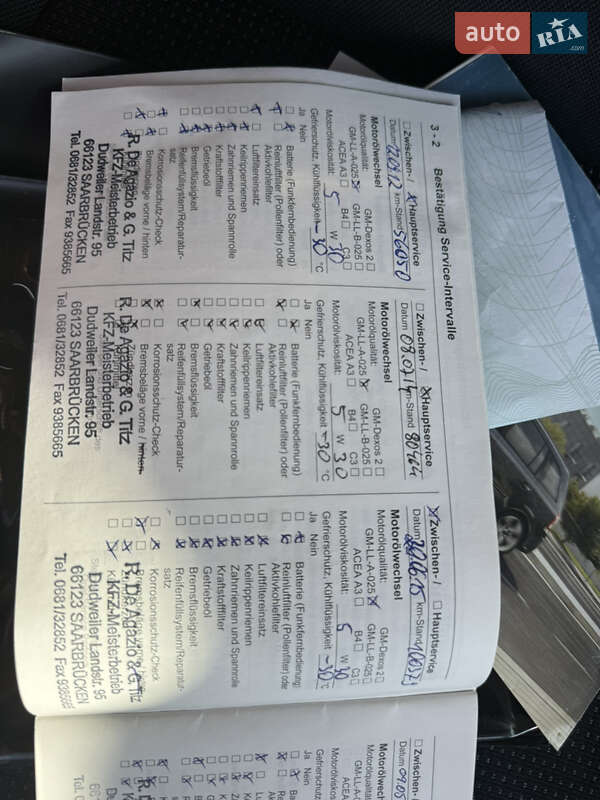 auto RIA .com
3 - 2 Bestätigung Service-Intervalle
Zwischen- / Hauptservice
Datum km-Stand 56050
Motorölwechsel
Motorölqualität: GM-Dexos 2
GM-LL-A-025 GM-LL-B-025
ACEA A3 B4 C3
Motorölviskosität: 5 W 30
Gefrierschutz, Kühlflüssigkeit -30 °C
Ja Nein
Batterie (Funkfernbedienung)
Reinluftfilter (Pollenfilter) oder
Aktivkohlefilter
Luftfiltereinsatz
Keilrippenriemen
Zahnriemen und Spannrolle
Kraftstofffilter
Getriebeöl
Bremsflüssigkeit
Reifenfüllsystem/Reparatur-
satz
Korrosionsschutz-Check
Bremsbeläge vorne / hinten
R. De Agazio & G. Titz
KFZ-Meisterbetrieb
Dudweiler Landstr. 95
66123 SAARBRÜCKEN
Tel. 0681/32852 Fax 9385685
Zwischen- / Hauptservice
Datum km-Stand 80464
Motorölwechsel
Motorölqualität: GM-Dexos 2
GM-LL-A-025 GM-LL-B-025
ACEA A3 B4 C3
Motorölviskosität: 5 W 30
Gefrierschutz, Kühlflüssigkeit -30 °C
Ja Nein
Batterie (Funkfernbedienung)
Reinluftfilter (Pollenfilter) oder
Aktivkohlefilter
Luftfiltereinsatz
Keilrippenriemen
Zahnriemen und Spannrolle
Kraftstofffilter
Getriebeöl
Bremsflüssigkeit
Reifenfüllsystem/Reparatur-
satz
Korrosionsschutz-Check
Bremsbeläge vorne / hinten
R. De Agazio & G. Titz
KFZ-Meisterbetrieb
Dudweiler Landstr. 95
66123 SAARBRÜCKEN
Tel. 0681/32852 Fax 9385685
Zwischen- / Hauptservice
Datum km-Stand
Motorölwechsel
Motorölqualität: GM-Dexos 2
GM-LL-A-025 GM-LL-B-025
ACEA A3 B4 C3
Motorölviskosität: 5 W 30
Gefrierschutz, Kühlflüssigkeit -30 °C
Ja Nein
Batterie (Funkfernbedienung)
Reinluftfilter (Pollenfilter) oder
Aktivkohlefilter
Luftfiltereinsatz
Keilrippenriemen
Zahnriemen und Spannrolle
Kraftstofffilter
Getriebeöl
Bremsflüssigkeit
Reifenfüllsystem/Reparatur-
satz
Korrosionsschutz-Check
R. De Agazio & G. Titz
KFZ-Meisterbetrieb
Dudweiler Landstr. 95
66123 SAARBRÜCKEN
Tel. 0681/32852 Fax 9385685
Zwischen-
Datum
Motorölwechsel
GM-LL-A-025
ACEA A3
Ja Nein